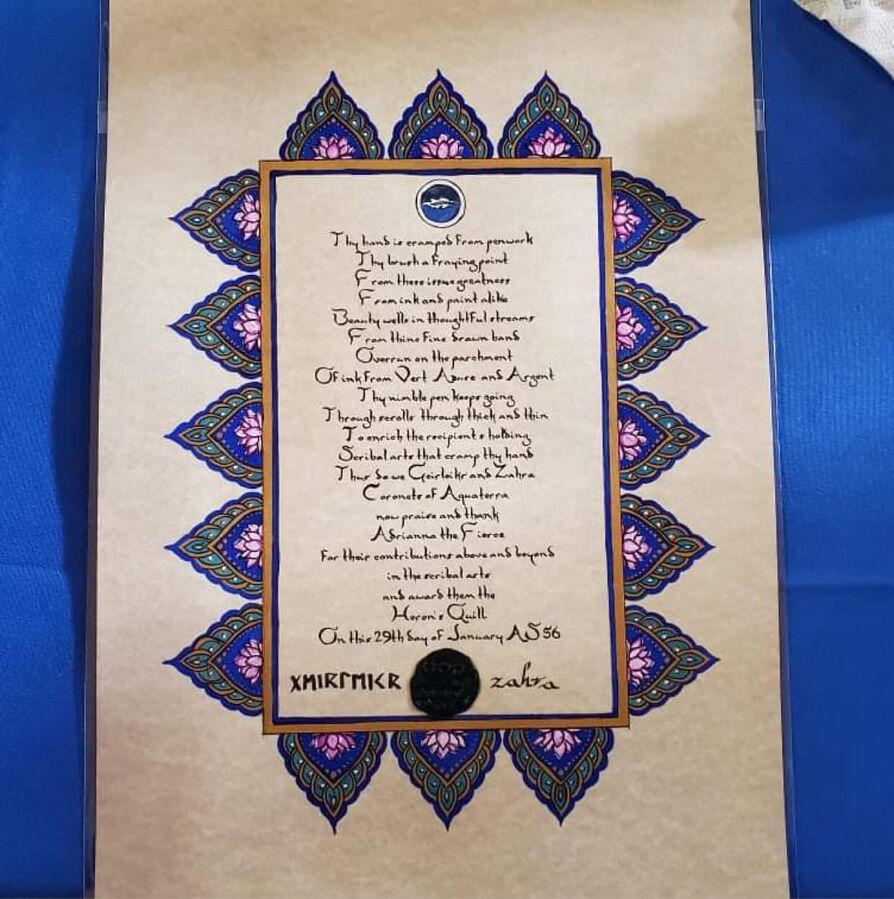 Thy hand is cramped from penwork
Thy brush a fraying point
From these issue greatness
From ink and paint alike
Beauty wells in thoughtful streams
From thine fine drawn hand
Overrun on the parchment
Of ink from Vert Azure and Argent
Thy nimble pen keeps going
Through scrolls through thick and thin
To enrich the recipients holding
Scribal arts that cramp thy hand
Thus do we Geirleikr and Zahra
Coronets of Aquaterra
now praise and thank
Adrianna the Fierce
For their contributions above and beyond
in the scribal arts
and award them the
Heron's Quill
On this 29th day of January AS 56
ᚷᛖIRᛚᛖIᚲR zahra